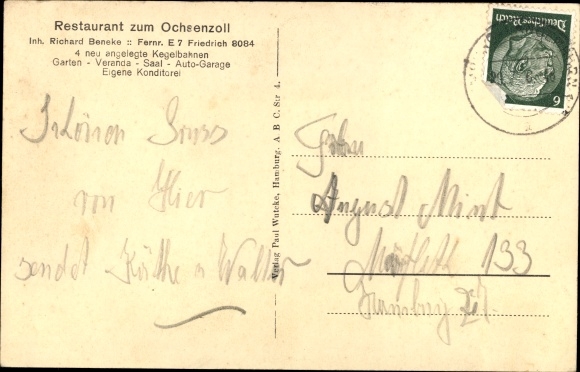 Restaurant zum Ochsenzoll
Inh. Richard Beneke :: Fernr. E 7 Friedrich 8084
4 neu angelegte Kegelbahnen
Garten - Veranda - Saal - Auto-Garage
Eigene Konditorei
Schönen Gruss
von Hier
sendet Käthe u Walter
Verlag Paul Wutcke, Hamburg, A B C, Str 4.
Deutsches Reich
6
August Mint
133
Hamburg